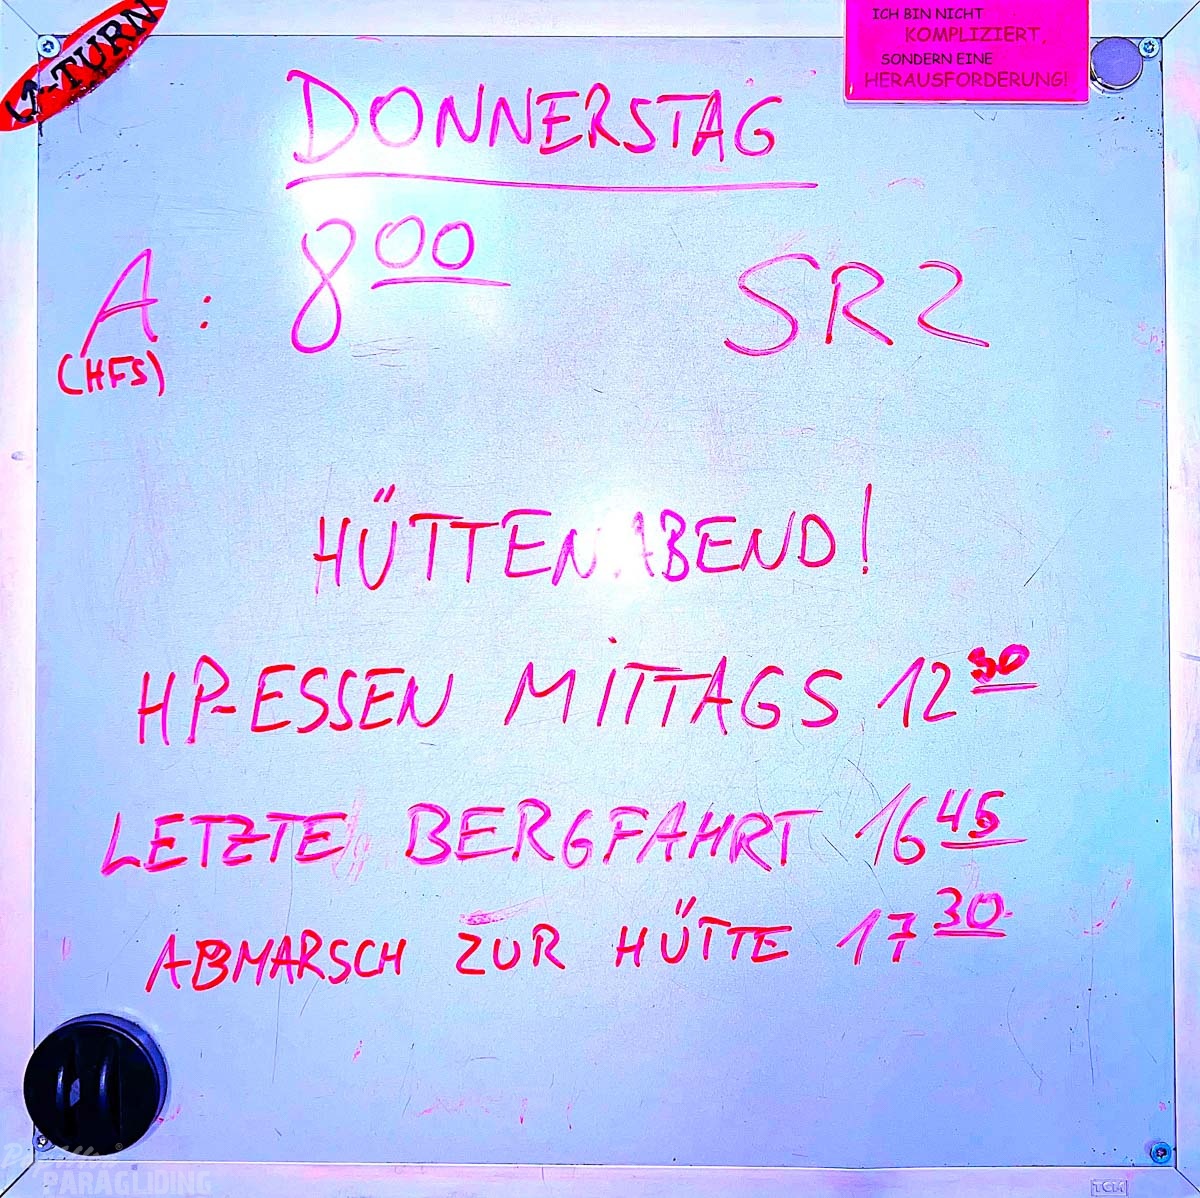 U-TURN
ICH BIN NICHT
KOMPLIZIERT,
SONDERN EINE
HERAUSFORDERUNG!
DONNERSTAG
A: 8 00 SR2
(HFS)
HÜTTENABEND!
HP-ESSEN MITTAGS 12 30
LETZTE BERGFAHRT 16 45
ABMARSCH ZUR HÜTTE 17 30
PARAGLIDING
TCM